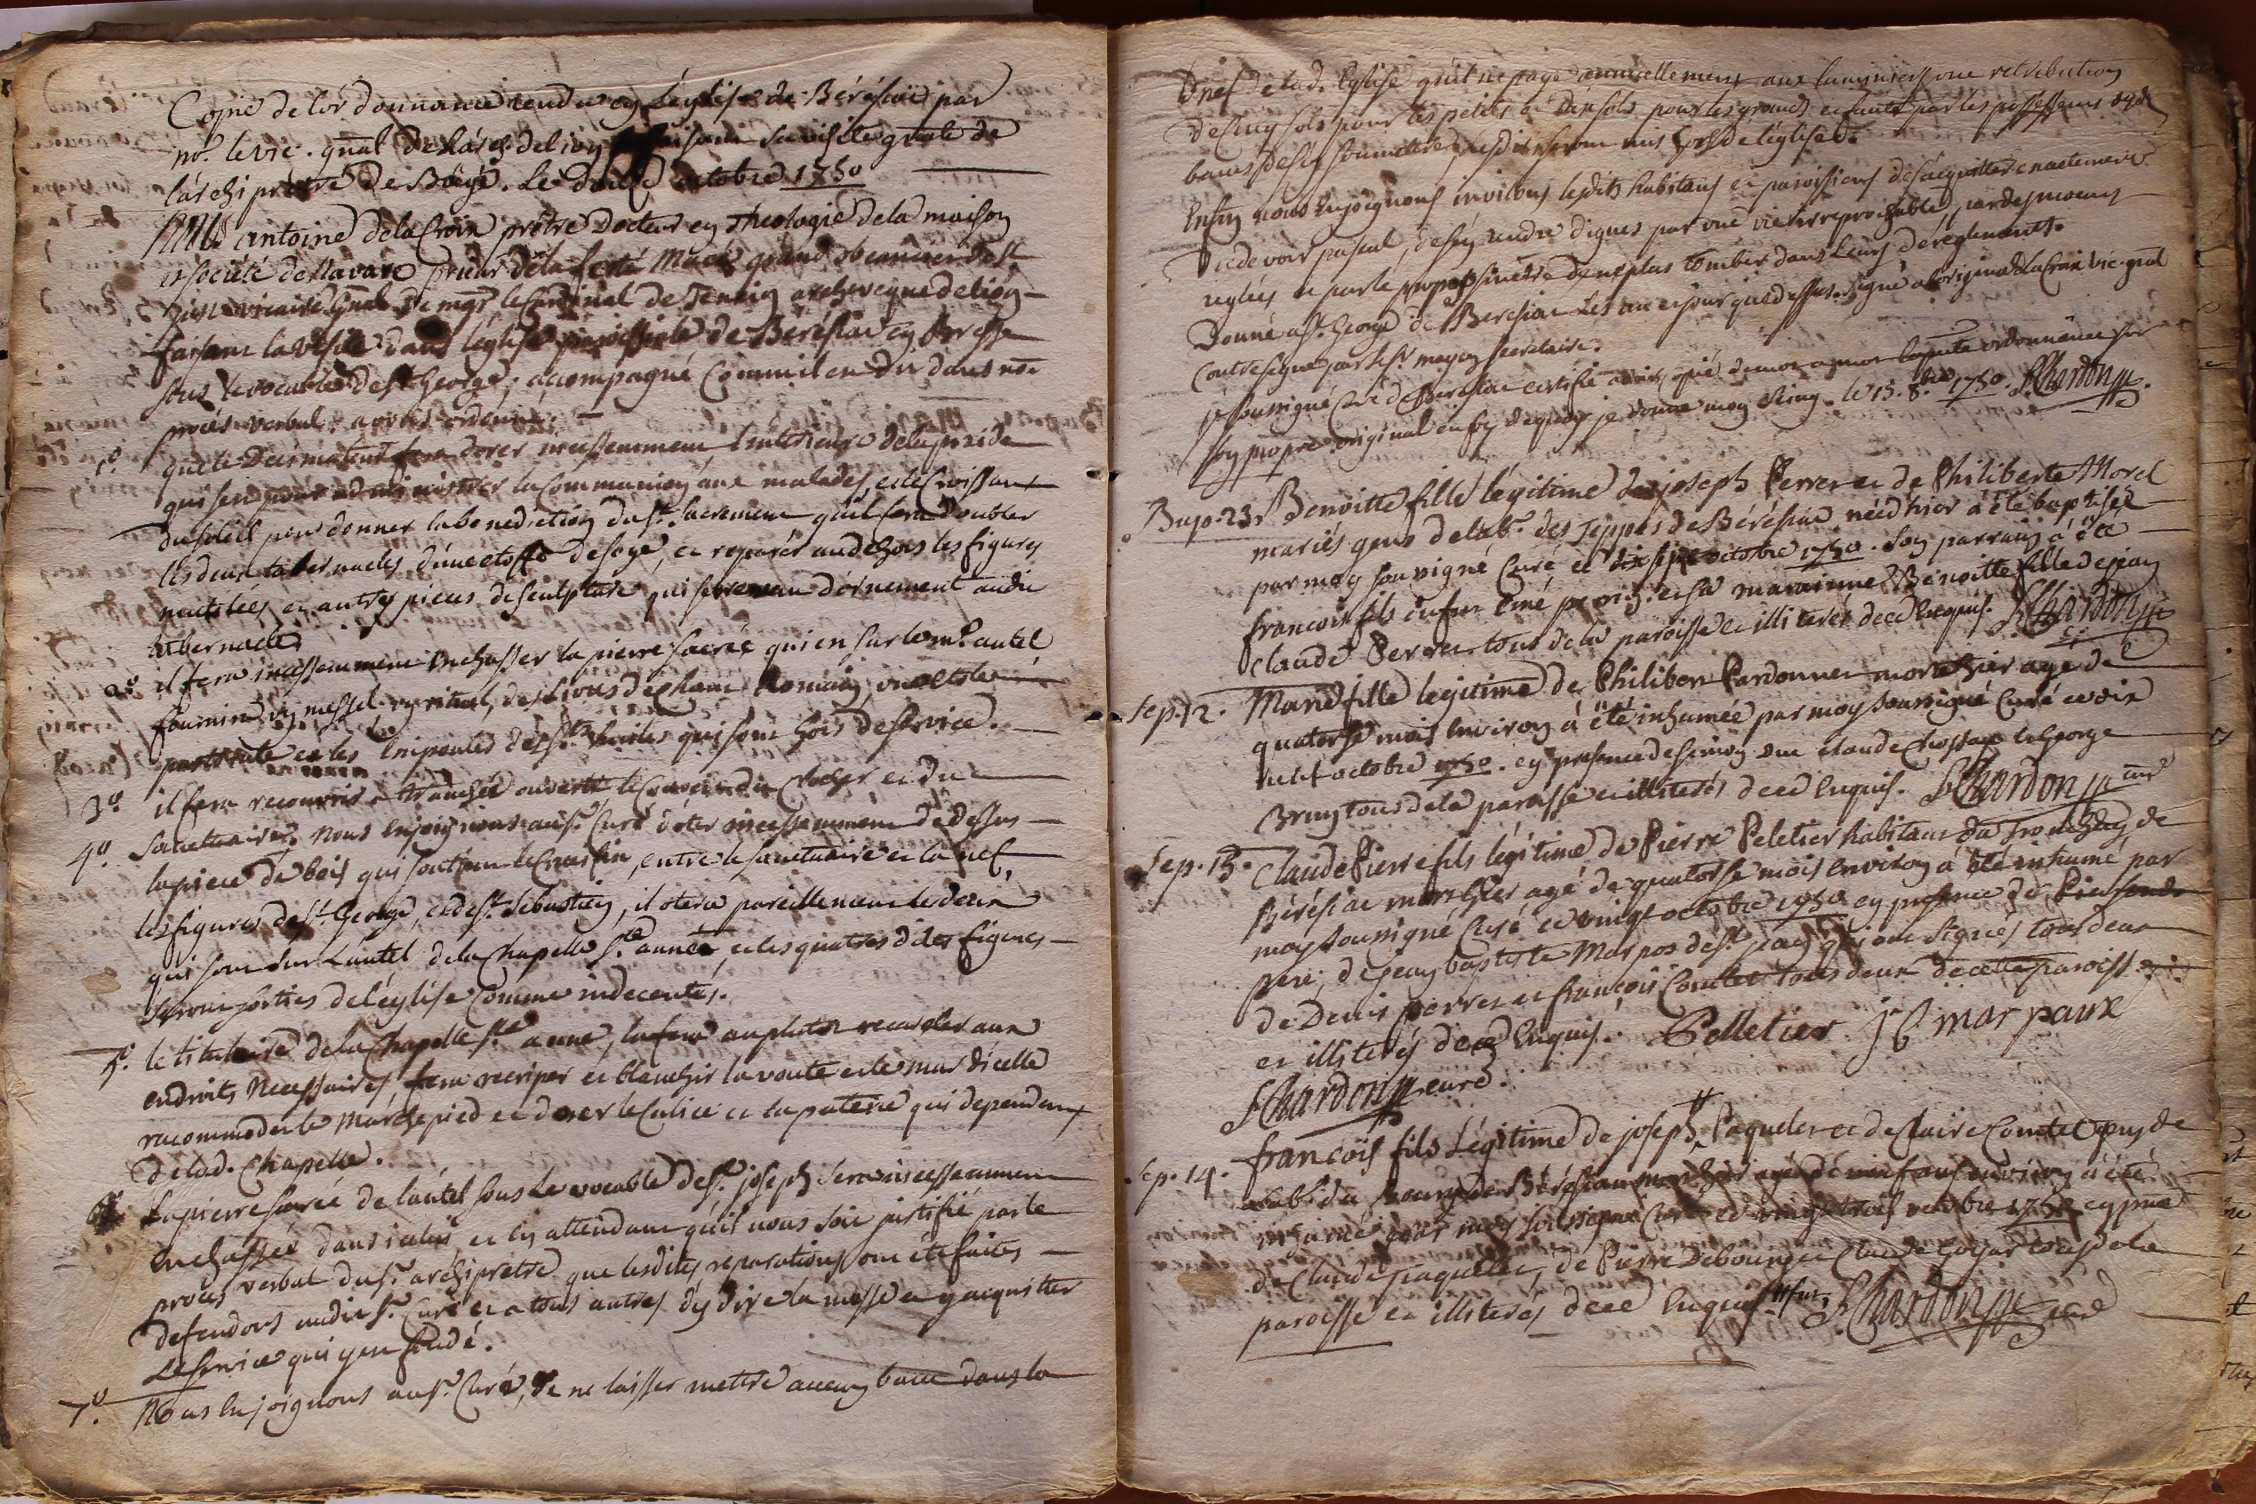 Copie de lor'donnance rendue en Léglise de Bérésiat par
mr. le vic. gnal de lárch. de lion faisant sa visite gnale de
lárchiprêtré De Bâgé. Le Douse octobre 1750
antoine de la Croix prêtre Docteur en theologie de la maison
et société de Navare prieur de la ferté Macé, grand obeancier de St
just vicaire Gnal de mgr le Cardinal de Tencin archevêque de lion
faisant la visite dans léglise paroissiale de Bérésiat en Bresse
sous le vocable de St George, accompagné Comm il en dit dans nôt
procés verbal, avons ordonné
1º. que le Decimateur fera dorer incessemment linterieur de la pixide
qui sert pour administrer la Communion aux malades, et le Croissant
du soleil pour donner la benediction du St. Sacrement quil fera doubler
les deux tabernacles dúne etoffe de soye, et reparér au dehors les figures
mutilées et autres pieces de sculpture qui servent dórnement audit
tabernacle
2º. il fera incessemment Enchasser la pierre sacrée qui en sur le mtre autel
fournira un messel un rituel, des Livres de chant Romain, une étole
pastorale et les Empoules des Stes huiles qui sont hors de service.
3º. il fera recouvrir à tranchée ouverte le Couvert du Clocher et du
Sanctuaire.
4º. nous Enjoignons au Sr. Curé dóter incessemment de dessus
la piece de bois qui soutient le Crucifix, entre le sanctuaire et la nef,
les figures de St. George, et de St. Sebastien, il otera pareillement les deux
qui sont sur Láutel de la Chapelle Ste. année, et les quatres dites figures
seront sorties de léglise comme indecentes.
5º. le titulaire de la Chapelle Ste. anne, la fera au plutôt recarreler aux
endroits Necessaires, fera recriper et blanchir la voute et le mur dicelle
racommoder le Marchepied et dorer le Calice et la patene qui dependent
de lad. Chapelle.
6º. La pierre sacrée de láutel sous Le vocable de St. joseph sera incessemment
Enchassée dans icelui et en attendant quil nous soit justifié par le
procés verbal du Sr. archiprêtre que lesdites reparations ont été faites
defendons audit Sr. Curé et a tous autres dy dire la messe et y acquitter
Le service qui y en fondé.
7º. Nous Enjoignons au Sr. Curé, de ne laisser mettre aucun banc dans la
nef de lad. Eglise quil ne paye annuellement aux luminiers une retribution
de cinq sols pour les petits et dix sols pour les grands et faute par les possesseurs des
bancs de s'y soumettre, lesdits seront mis hors de léglise.
Enfin nous Enjoignons invitons lesdits habitans et paroissiens de sácquitter exactement
du devoir pascal, de sen rendre dignes par une vie irreprochable, par des moeurs
reglées et par le propos sincere de ne plus tomber dans Leurs déreglements.
Donné a St. George de Beresiat Les an et jour que dessus. Signé a loriginal Lacroix vic. gnal
Contresigné par le Sr. mayon secretaire.
je soussigné Curé de Beresiat certifie avoir copié de mot a mot la presente ordonnance sur
son propre original en foy dequoy je donne mon seing. le 13. 8.bre 1750. F. Chardon
Bap. 23. Benoitte fille légitime de joseph Perret et de Philiberte Morel
mariés gens de lab. des Teppes de Bérésiat néë d'hier à été baptisée
par moy soussigné Curé ce dix sept octobre 1750. Son parrain à été
francois fils du fut Emé et sa marainne Bénoitte fille de jean
claude Perret tous de la paroisse et illiterés de ce Enquis. F. Chardon
Sep. 12. Marie fille legitime de Philibert Pardonnet morte hier agée de
quatorse mois Environ à été inhumée par moy soussigné Curé ce dix
neuf octobre 1750. en presence de simon et claude et George
Brun tous de la paroisse et illiterés de ce Enquis. F. Chardon curé
Sep. 13. Claude Pierre fils légitime de Pierre Peletier habitant du Tronchay de
Bérésiat mort hier agé de quatorse mois Environ à été inhumé par
moy soussigné Curé ce vingt octobre 1750 en presence de Pierre son
pere, de jean baptiste Marpos de St. jean qui ont Signés tous deux
de Denis perret et françois Comtet tous deux de cette paroisse
et illiterés de ce Enquis. Pelletier J b marpaux
F. Chardon curé.
Sep. 14. françois fils Légitime de joseph Paquelet et de Claire Comtet gens de
lab. du bourg de Bérésiat mort hier agé de neuf ans environ à été
inhumé par moy soussigné Curé ce vingt trois octobre 1750 en pnce
de Claude Paquelet, de Pierre Debourg et Claude Goyat tous de la
paroisse et illiterés de ce Enquis. F. Chardon curé